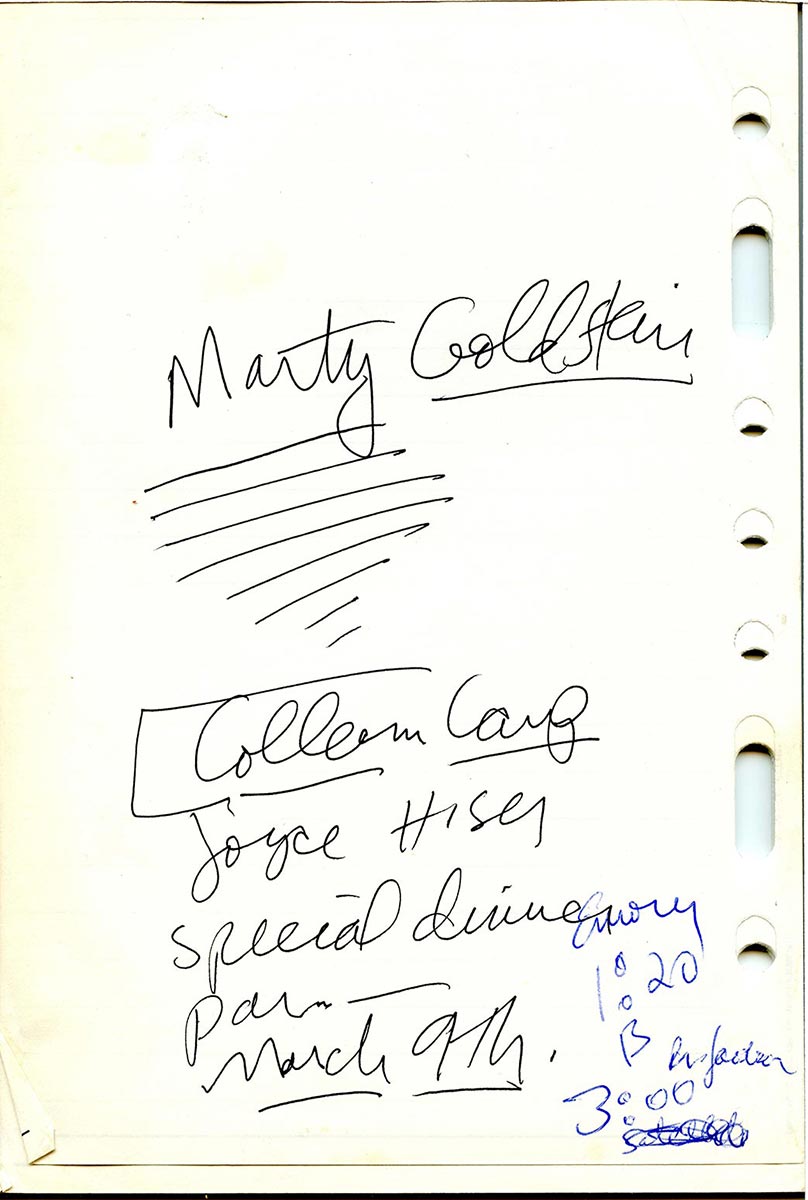 Marty Goldstein
Colleen
Joyce Hiser
special dinner
March 9th.
Emory
1:20
B
3:00